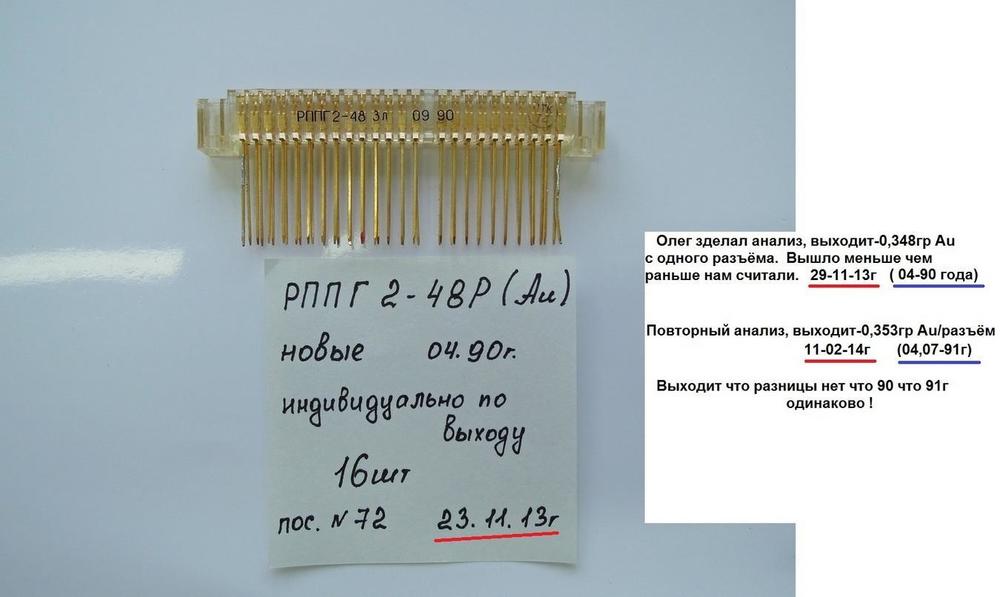 РППГ2-48 3л 09 90
РППГ 2-48Р (Au)
новые 04.90г.
индивидуально по
выходу
16шт
пос. N 72 23.11.13г
Олег зделал анализ, выходит-0,348гр Au
с одного разъёма. Вышло меньше чем
раньше нам считали. 29-11-13г ( 04-90 года)
Повторный анализ, выходит-0,353гр Au/разъём
11-02-14г (04,07-91г)
Выходит что разницы нет что 90 что 91г
одинаково !